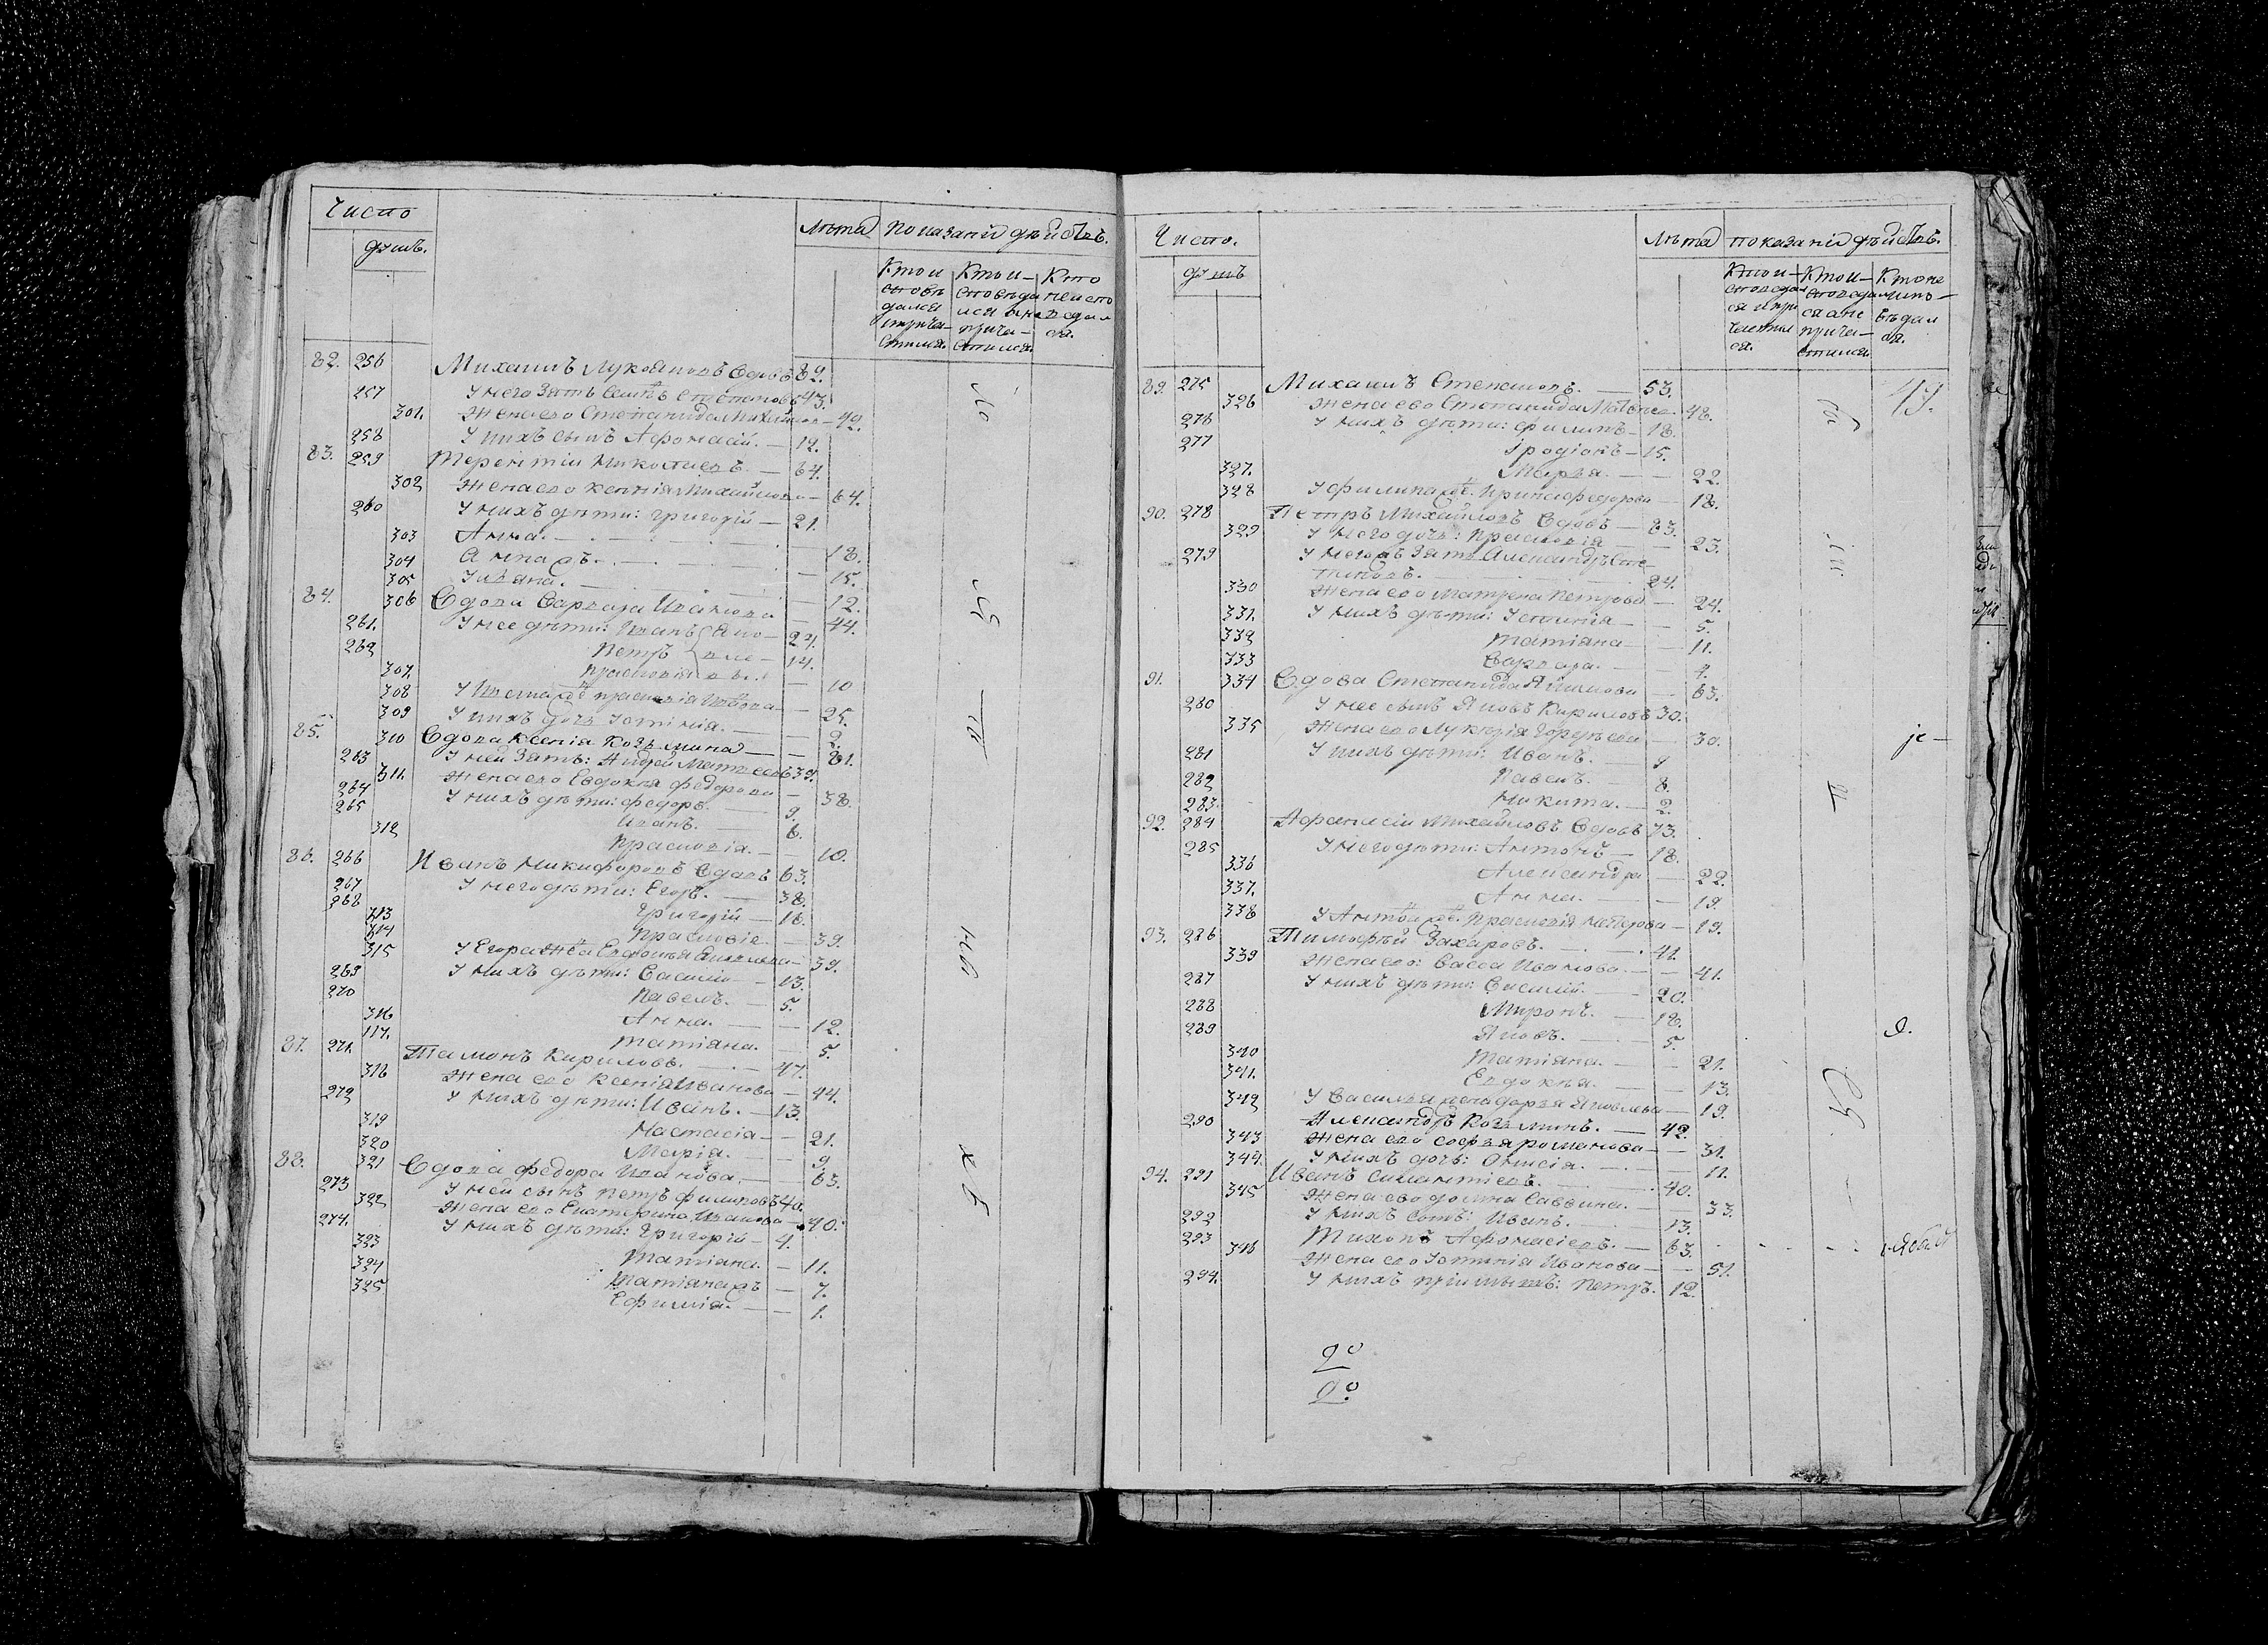 Число
душъ.
Лѣта Показаніи дѣйствъ.
Кто и исповѣдался и причастился.
Кто исповѣдался а не причастился.
Кто не исповѣдался.
82. 256 Михаилъ Лукояновъ Вдовъ 82.
257 У него зять Семенъ Степановъ 43.
301. Жена его Степанида Михайлова — 42.
258 У нихъ сынъ Афонасій. — 12.
83. 259 Терентіи Николаевъ. — 64.
302 Жена его Ксенія Михайлова — 64.
260 У нихъ дѣти: Григорій — 21.
303 Анна. — 18.
304 Анна дъ. — 15.
305 Ульяна. — 12.
84. 306 Вдова Варвара Иванова — 44.
261. У нее дѣти: Иванъ — 24.
262 Петръ — 14.
307. Прасковія — 10
308 У Ивана жена Прасковія — 25.
309 У нихъ дочь Устинія. — 2.
85. 310 Вдова Ксенія Козьмина — 81.
263 У ней зять: Андрей Матвеевъ 39.
311. Жена его Евдокія Федорова — 38.
264 У нихъ дѣти: Федоръ. — 9.
265 Иванъ. — 6.
312 Прасковія. — 10.
86. 266 Иванъ Никифоровъ Вдовъ 63.
267 У него дѣти: Егоръ. — 38.
268 Григорій — 16.
313 Прасковіе. — 39.
314
315 У Егора жена Евдокія — 39.
269 У нихъ дѣти: Василій — 13.
270 Павелъ. — 5.
316 Анна. — 12.
117. Татіяна. — 5.
87. 271. Тимонъ Кириловъ. — 47.
318 Жена его Ксенія Иванова — 44.
272 У нихъ дѣти: Иванъ. — 13.
319 Настасія — 21.
320 Марія. — 9.
88. 321 Вдова Федора Иванова. — 63.
273 У ней сынъ Петръ Филиповъ 40.
322 Жена его Екатерина Иванова — 40.
274. У нихъ дѣти: Григорій — 4.
323 Татіяна. — 11.
324 Татіяна дъ — 7.
325 Ефимія. — 1.
Число.
душъ
Лѣта показаніи дѣйствъ.
Кто исповѣдался и причастился.
Кто исповѣдался а не причастился.
Кто не исповѣдался.
49.
89. 275 Михаилъ Степановъ. — 53.
326 Жена его Степанида Матвеева — 48.
276 У нихъ дѣти: Филипъ — 18.
277 Іродіонъ — 15.
327. Марья. — 22.
328 У Филипа жена Ирина Федорова — 18.
90. 278 Петръ Михайловъ Вдовъ — 83.
329 У него дочь: Прасковія — 23.
279 У него зять Александръ Степановъ. — 24.
330 Жена его Матрена Петрова — 24.
331. У нихъ дѣти: Устинія — 5.
332 Татіяна — 11.
333 Варвара. — 4.
91. 334 Вдова Степанида Якимова — 63.
280 У нее сынъ Яковъ Кириловъ 30.
335 Жена его Лукерія Гордѣева — 30.
281 У нихъ дѣти: Иванъ. — 9
282 Павелъ. — 8.
283. Никита. — 2.
92. 284 Афанасіи Михайловъ Вдовъ 73.
285 У него дѣти: Антонъ — 18.
336 Александра — 22.
337. Анна. — 19.
338 У Антона жена Прасковія — 19.
93. 286 Тимофѣй Захаровъ. — 41.
339 Жена его: Васса Иванова. — 41.
287 У нихъ дѣти: Василій. — 20.
288 Миронъ. — 18.
289 Яковъ. — 5.
340 Татіяна. — 21.
341. Евдокія. — 13.
342 У Василья жена Дарья Яковлева — 19.
290 Александръ Козьминъ. — 42.
343 Жена его Софья Романова — 31.
344. У нихъ дочь: Онисія. — 11.
94. 291 Иванъ Силантіевъ. — 40.
345 Жена его Домна Саввина. — 33.
292 У нихъ сынъ: Иванъ. — 13.
293 Тихонъ Афонасіевъ. — 63.
346 Жена его Устинія Иванова — 51.
294. У нихъ приимышъ: Петръ. 12.